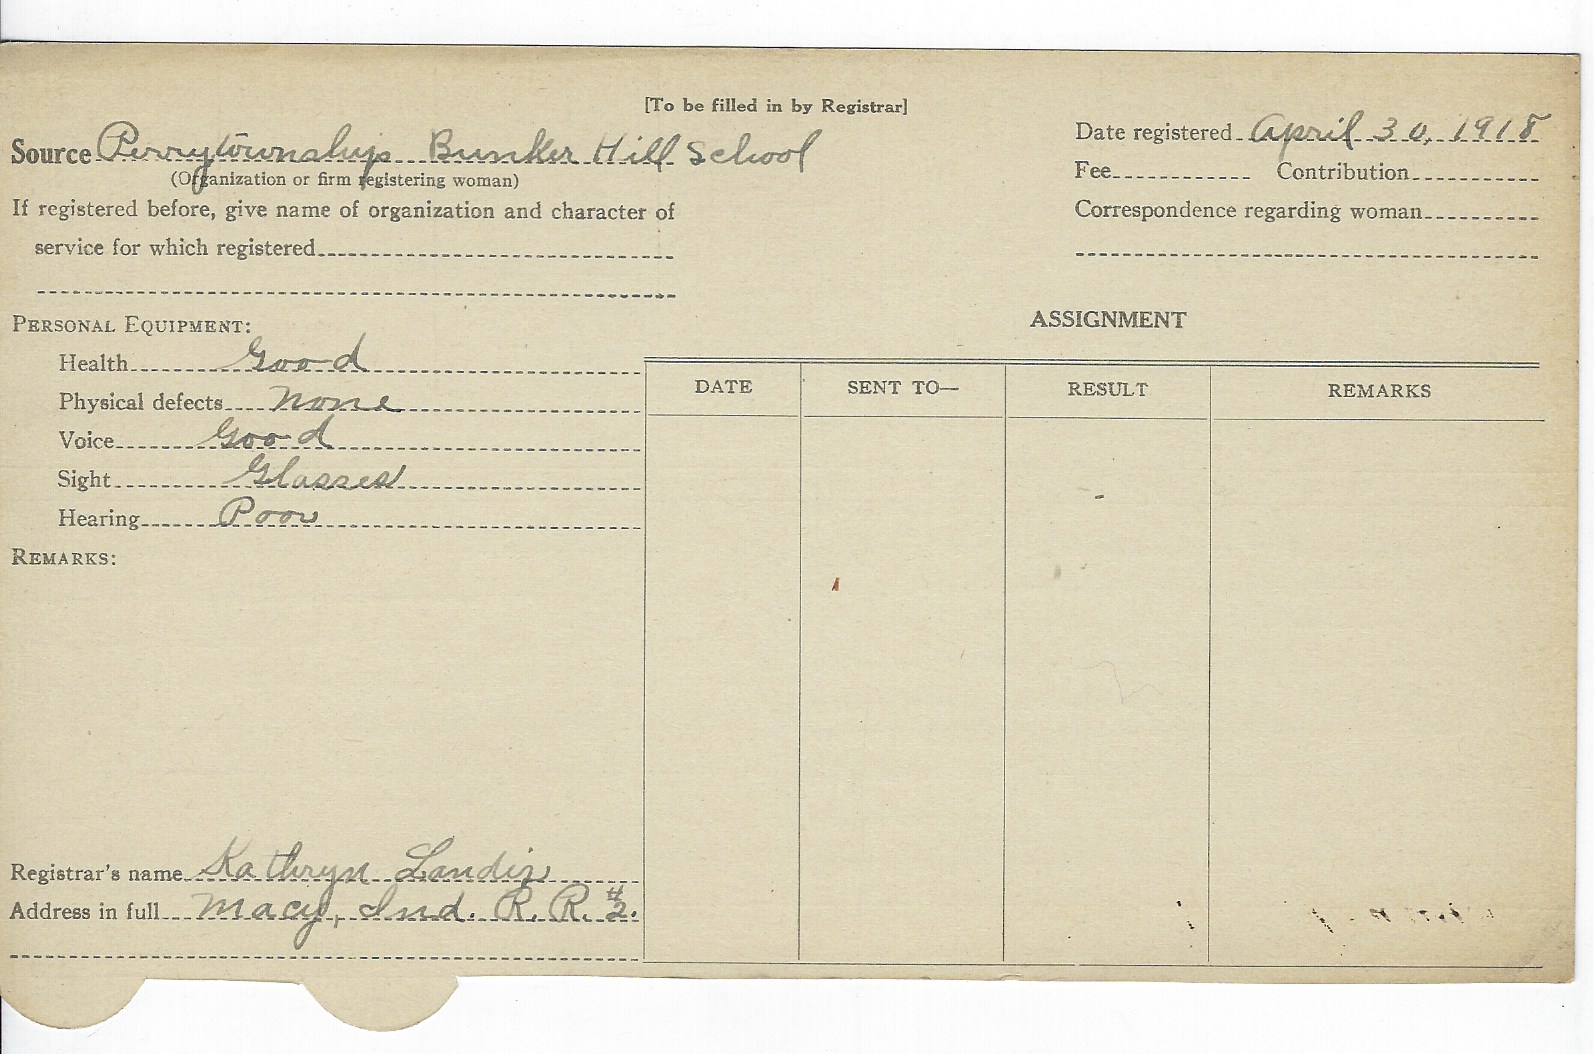 [To be filled in by Registrar]
Source Perrytownship Bunker Hill School
(Organization or firm registering woman)
If registered before, give name of organization and character of
service for which registered
Date registered April 30, 1918
Fee Contribution
Correspondence regarding woman
PERSONAL EQUIPMENT:
Health Good
Physical defects None
Voice Good
Sight Glasses
Hearing Poor
REMARKS:
Registrar's name Kathryn Landis
Address in full Macy, Ind. R. R. #2.
ASSIGNMENT
DATE SENT TO— RESULT REMARKS